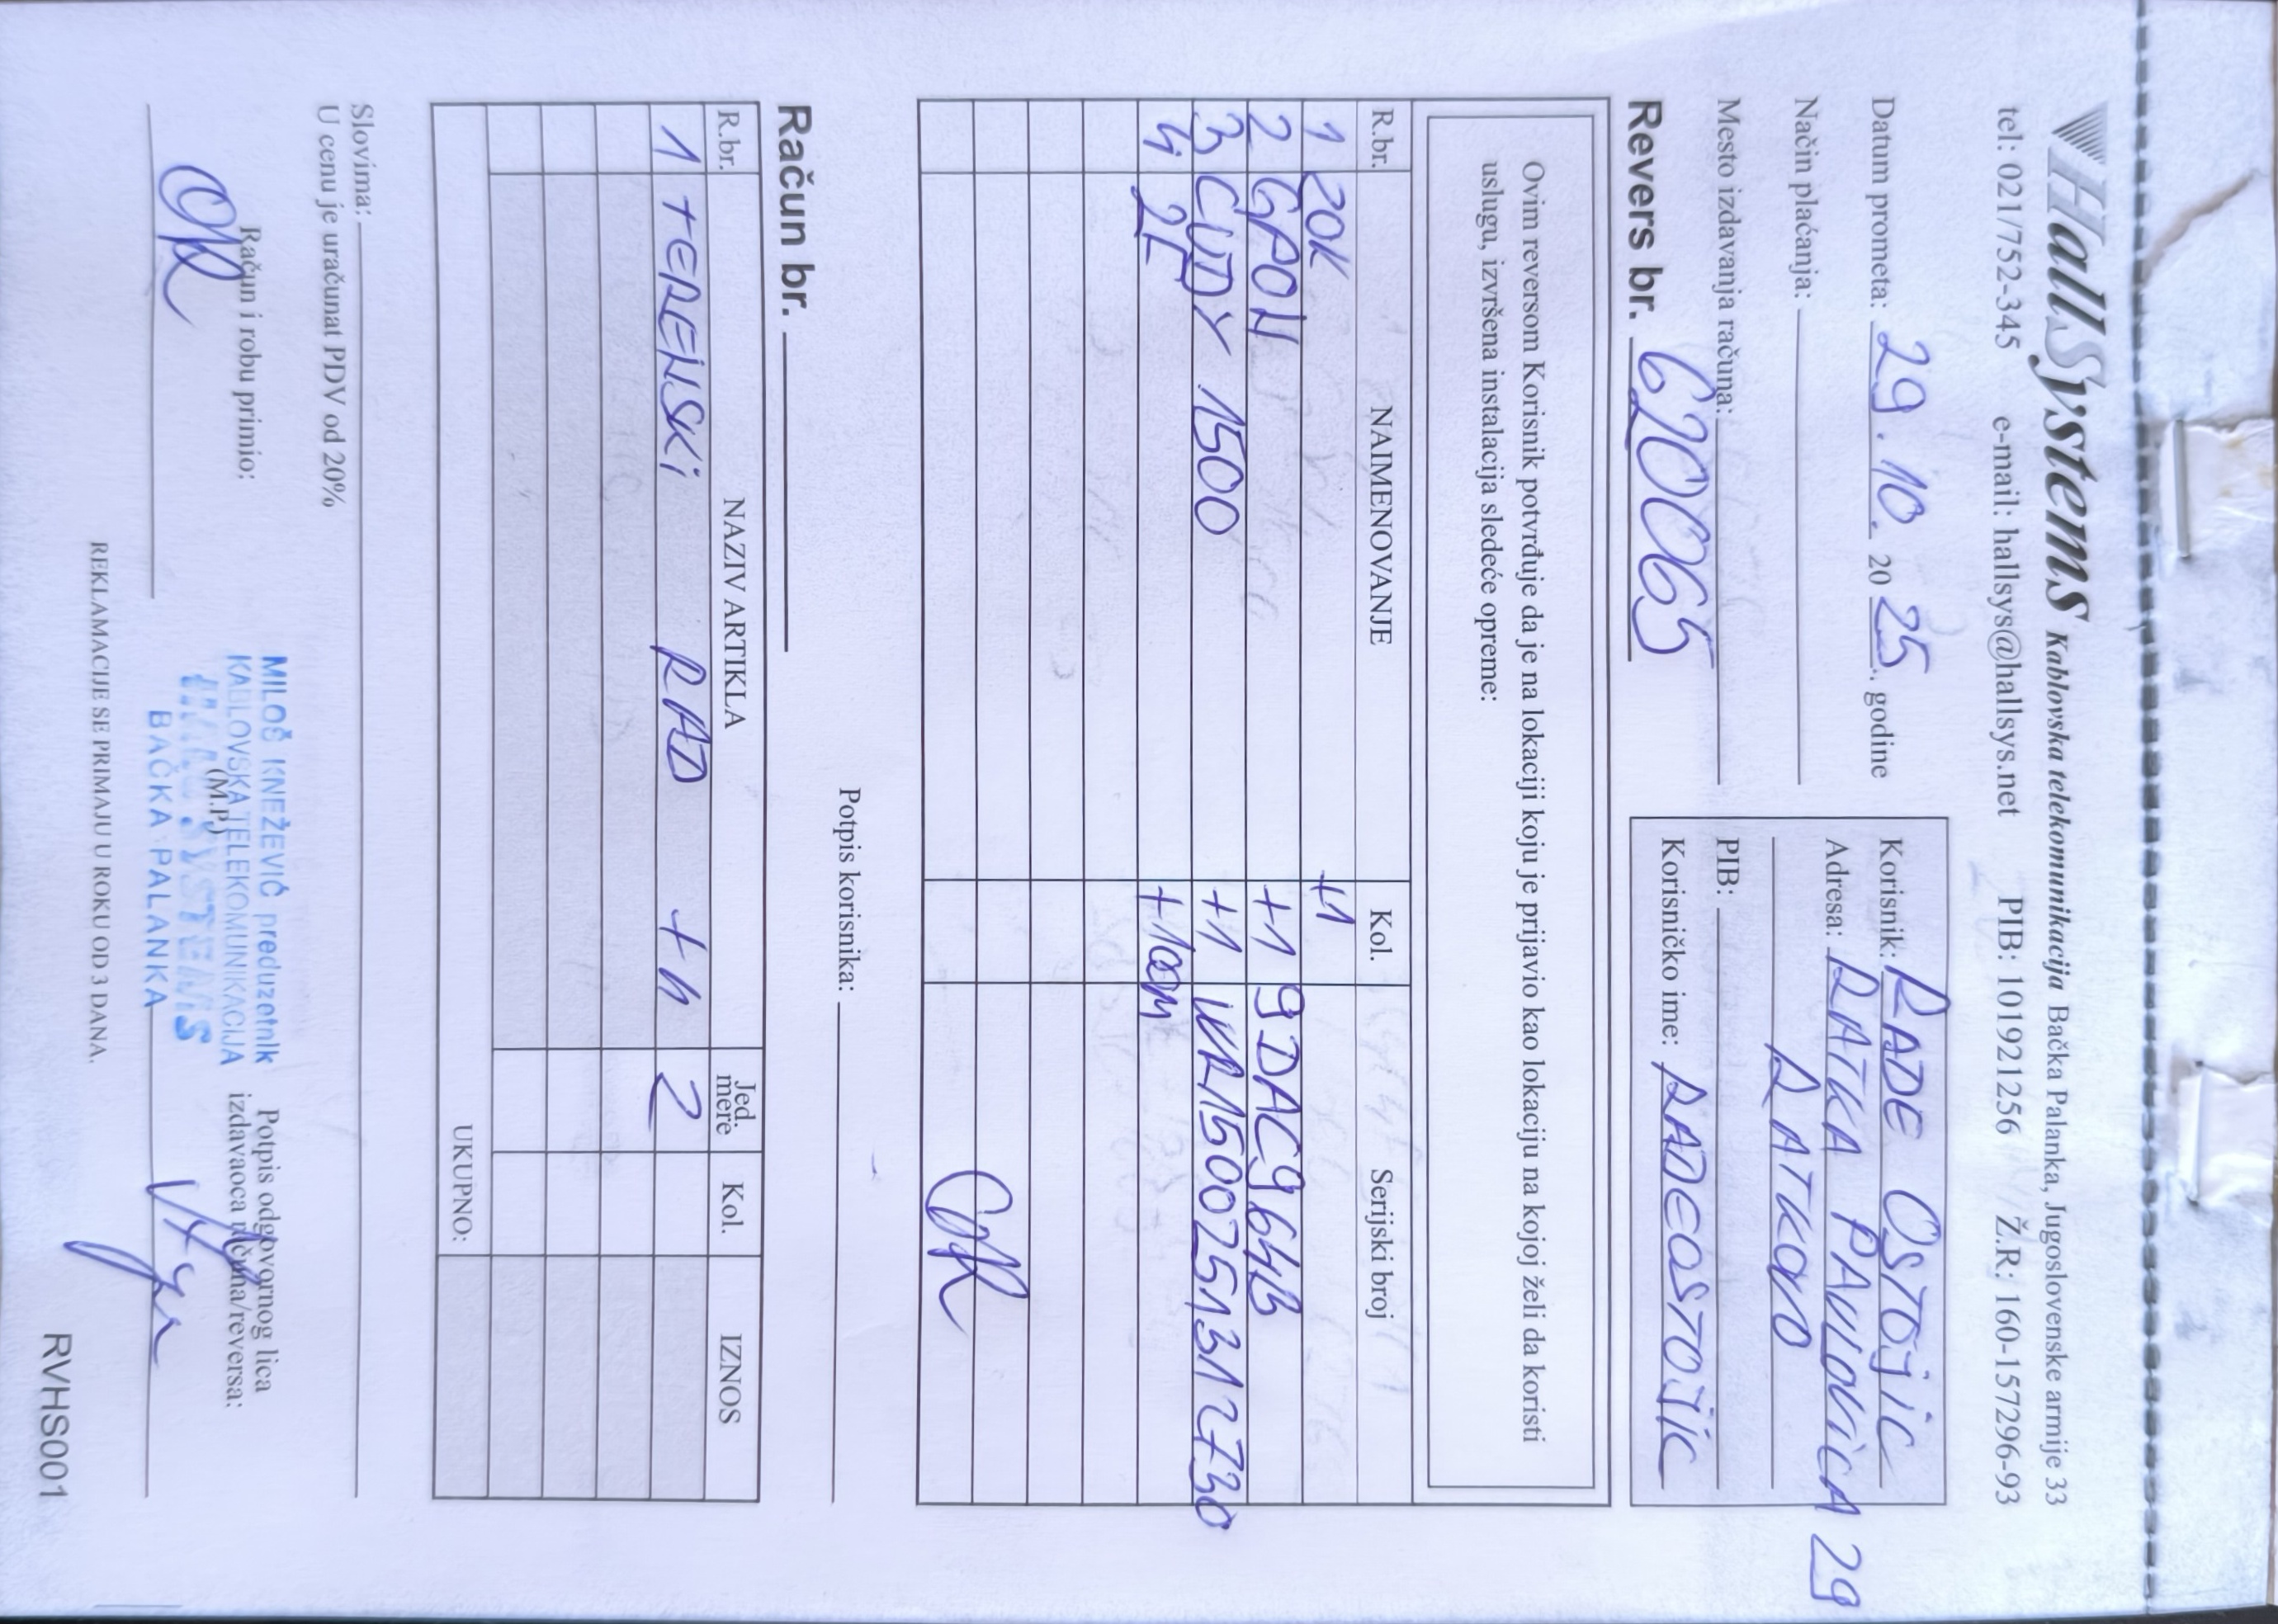 HallSystems Kablovska telekomunikacija Bačka Palanka, Jugoslovenske armije 33
tel: 021/752-345 e-mail: hallsys@hallsys.net PIB: 101921256 Ž.R: 160-157296-93
Datum prometa: 29.10. 2025. godine
Način plaćanja:
Mesto izdavanja računa:
Revers br. 620065
Korisnik: RADE OSTOJIC
Adresa: RATKA PAVLOVICA 29
RATKOVO
PIB:
Korisničko ime: RADEOSTOJIC
Ovim reversom Korisnik potvrđuje da je na lokaciji koju je prijavio kao lokaciju na kojoj želi da koristi
uslugu, izvršena instalacija sledeće opreme:
R.br. NAIMENOVANJE Kol. Serijski broj
1 ZOK +1
2 GPON +1 9DAC964B
3 CUDY 1500 +1 WR1500251312730
4 2F +100m
Potpis korisnika:
Račun br.
R.br. NAZIV ARTIKLA Jed. mere Kol. IZNOS
1 TERENSKI RAD +h 2
UKUPNO:
Slovima:
U cenu je uračunat PDV od 20%
Račun i robu primio:
MILOŠ KNEŽEVIĆ preduzetnik
KABLOVSKA TELEKOMUNIKACIJA
HALL SYSTEMS
BAČKA PALANKA
(M.P.)
Potpis odgovornog lica
izdavaoca računa/reversa:
REKLAMACIJE SE PRIMAJU U ROKU OD 3 DANA.
RVHS001